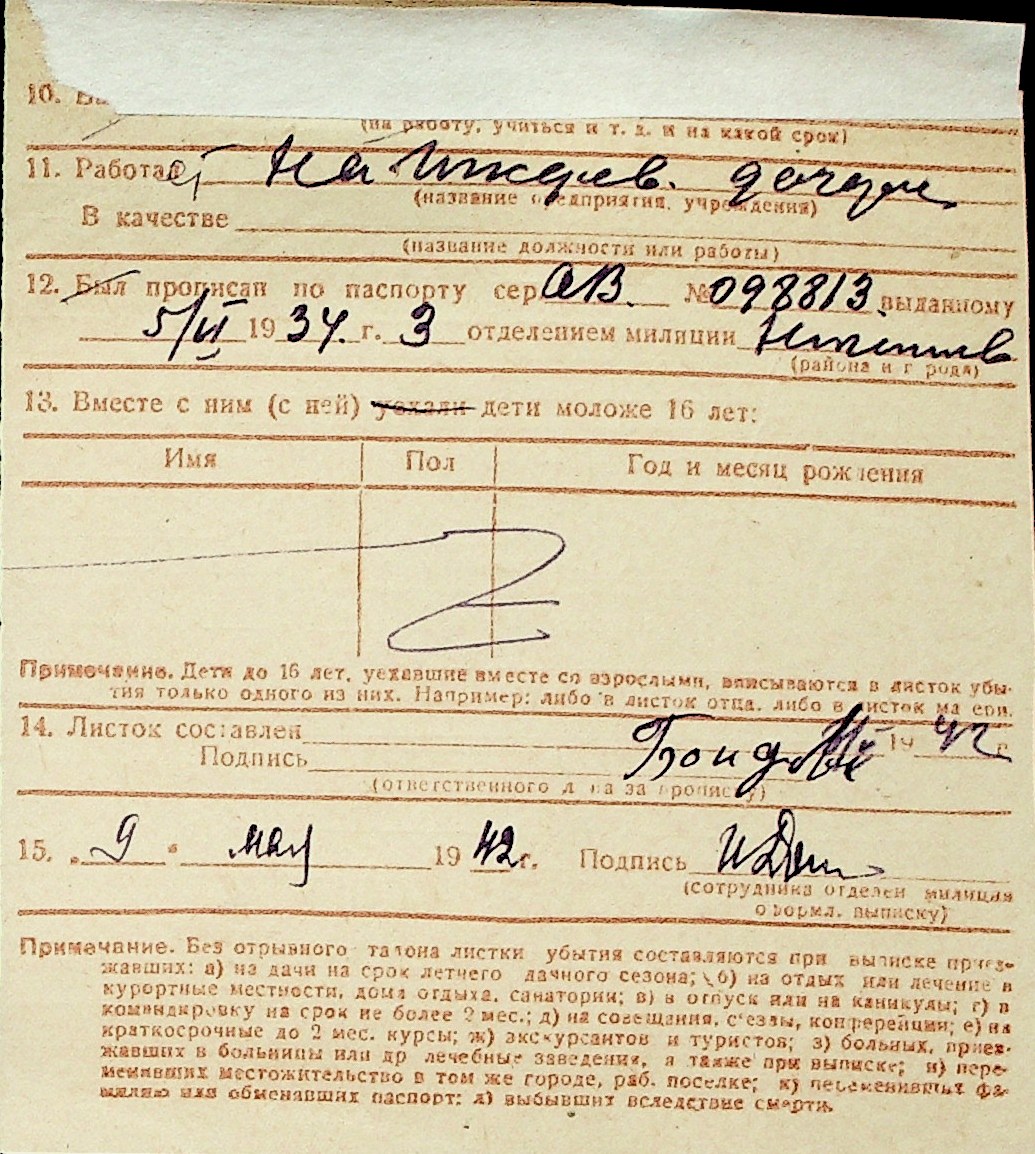 10.
(на работу, учиться и т. д. и на какой срок)
11. Работает На иждев. дочери
(название предприятия, учреждения)
В качестве
(название должности или работы)
12. Был прописан по паспорту сер. АВ. № 098813 выданному
5/VI 1934. г. 3 отделением милиции
(района и города)
13. Вместе с ним (с ней) уехали дети моложе 16 лет:
Имя Пол Год и месяц рождения
Z
Примечание. Дети до 16 лет, уехавшие вместе со взрослыми, вписываются в листок убы-
тия только одного из них. Например: либо в листок отца, либо в листок матери.
14. Листок составлен 19 42 г.
Подпись
(ответственного лица за прописку)
15. „ 9 " мая 19 42 г. Подпись
(сотрудника отделен. милиции
оформл. выписку)
Примечание. Без отрывного талона листки убытия составляются при выписке приез-
жавших: а) на дачи на срок летнего дачного сезона; б) на отдых или лечение в
курортные местности, дома отдыха, санатории; в) в отпуск или на каникулы; г) в
командировку на срок не более 2 мес.; д) на совещания, съезды, конференции; е) на
краткосрочные до 2 мес. курсы; ж) экскурсантов и туристов; з) больных, приез-
жавших в больницы или др лечебные заведения, а также при выписке; и) пере-
менивших местожительство в том же городе, раб. поселке; к) переменивших фа-
милию или обменявших паспорт; л) выбывших вследствие смерти.